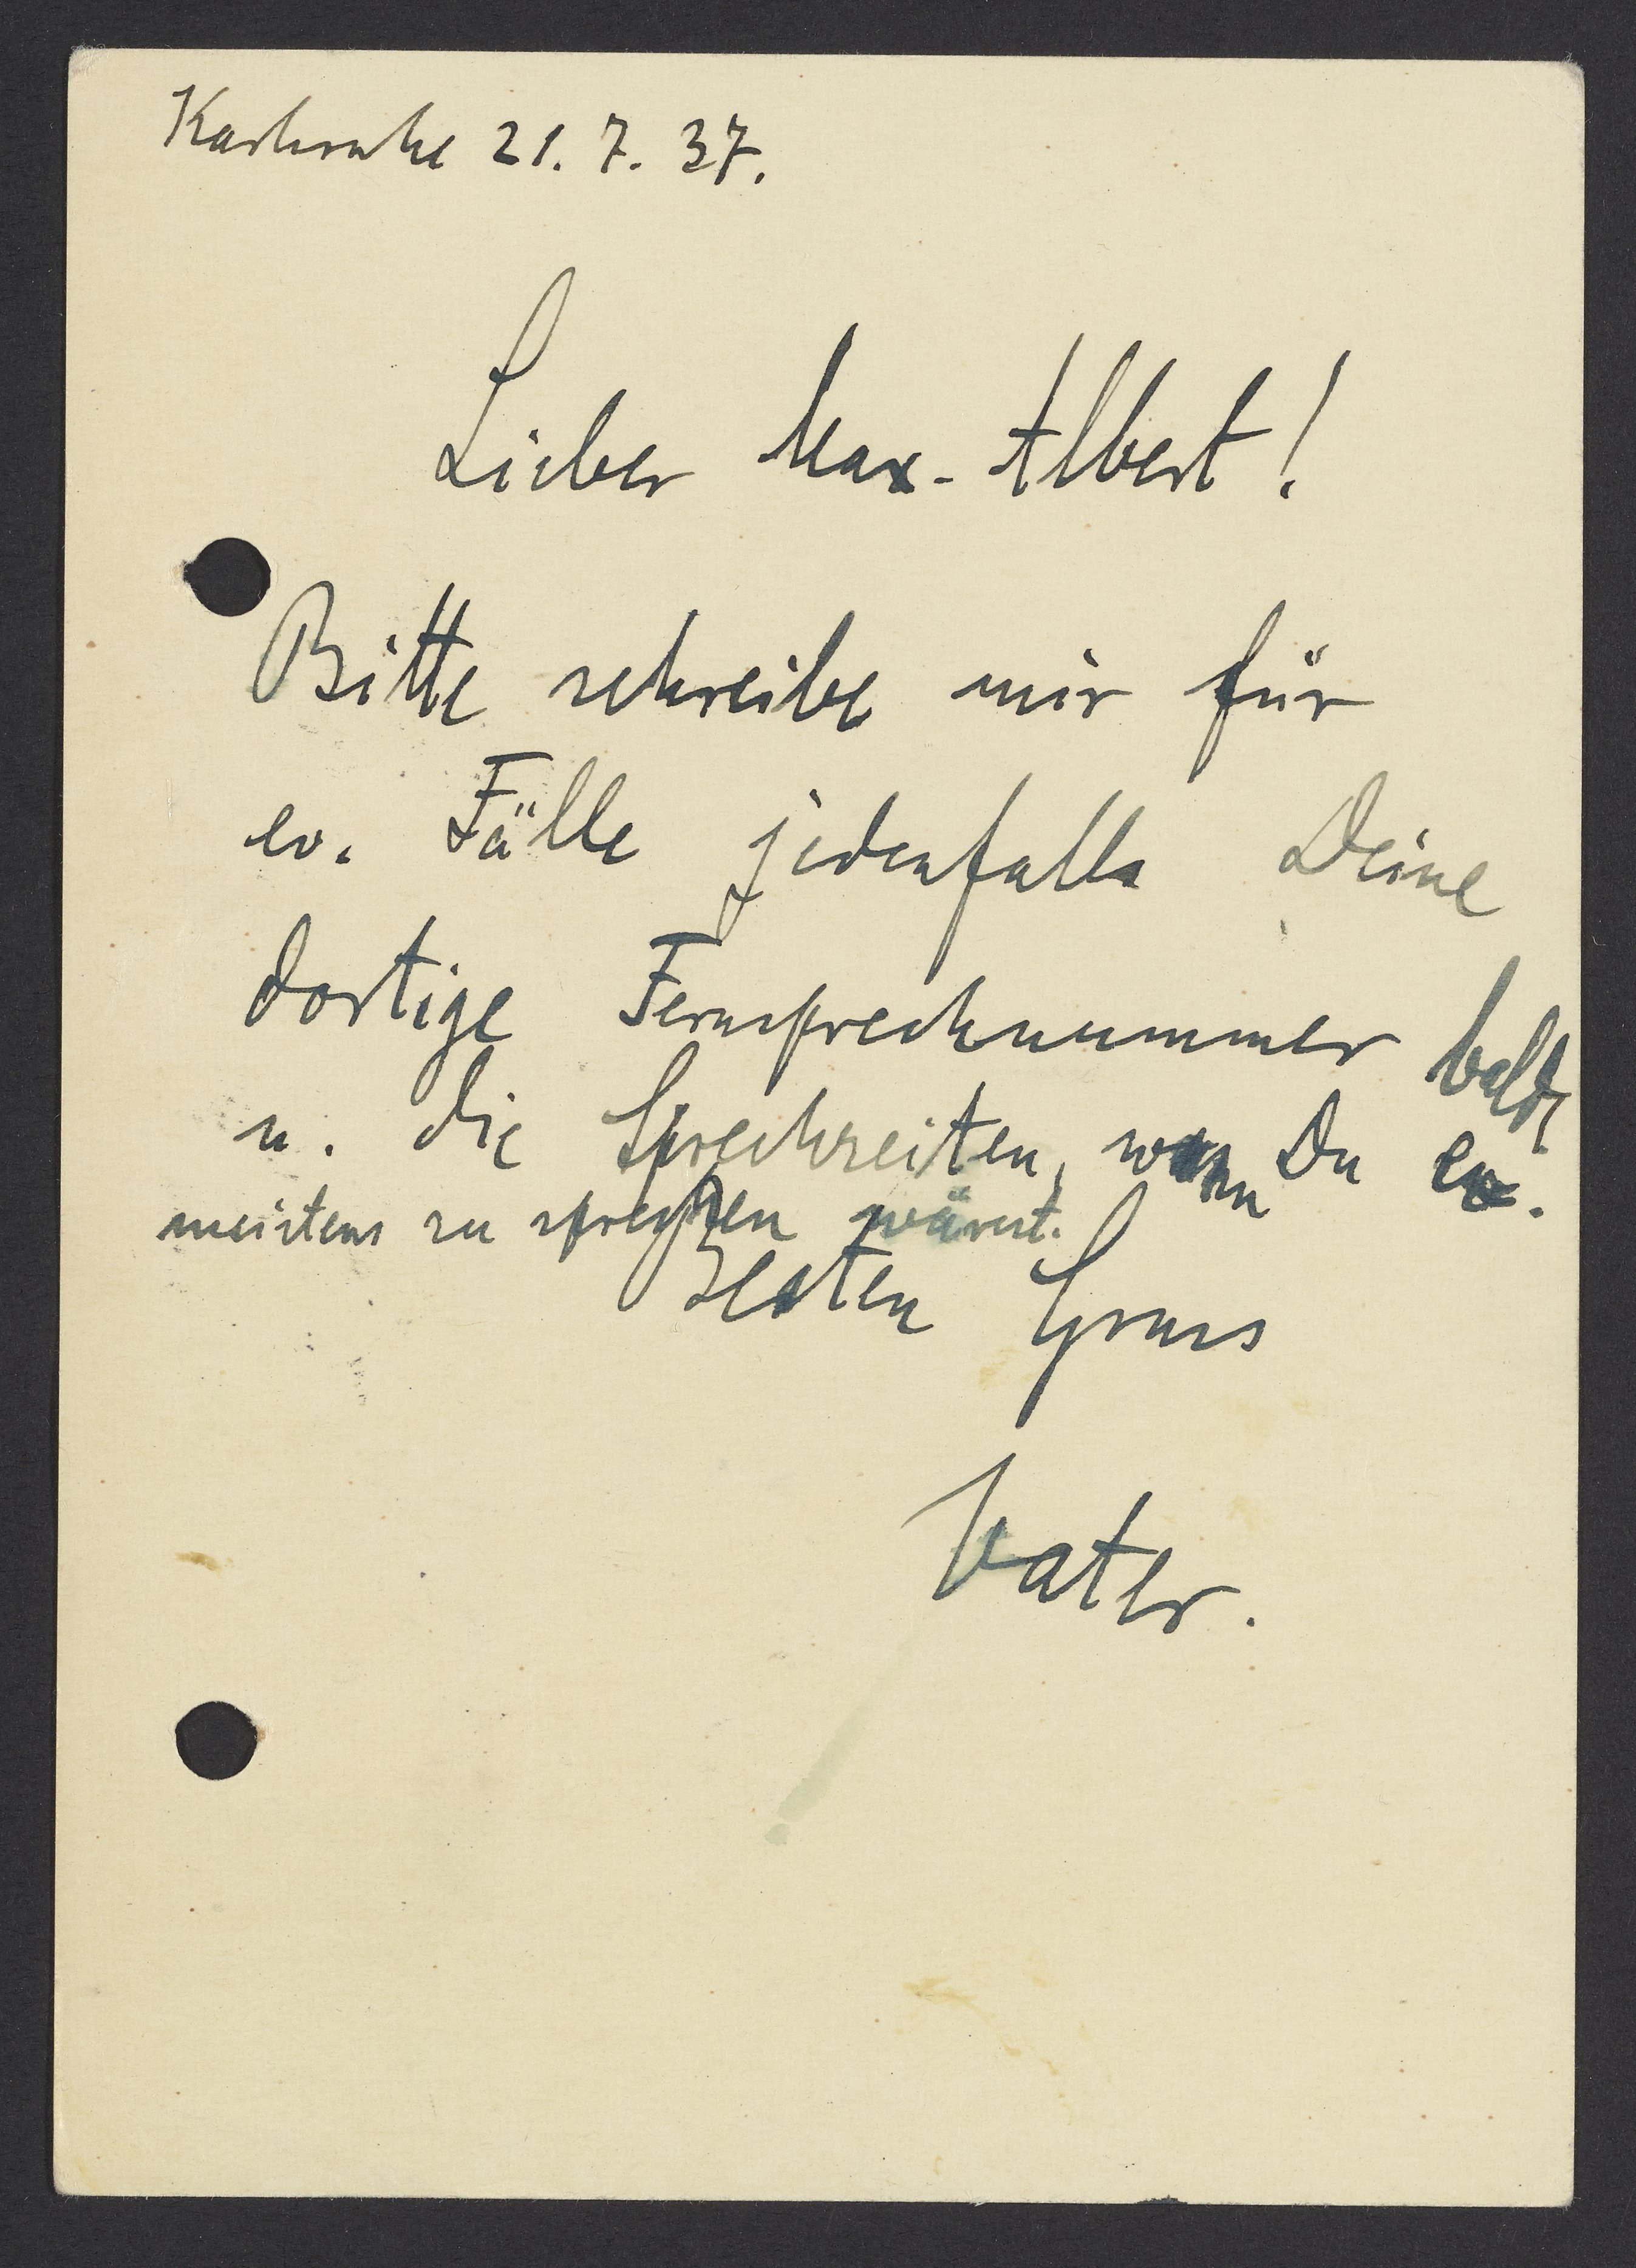 Karlsruhe 21. 7. 37.
Lieber Max-Albert!
Bitte schreibe mir für
ev. Fälle jedenfalls Deine
dortige Fernsprechnummer bald,
u. die Sprechzeiten, wann Du ev.
meistens zu sprechen wärest.
Besten Gruss
Vater.